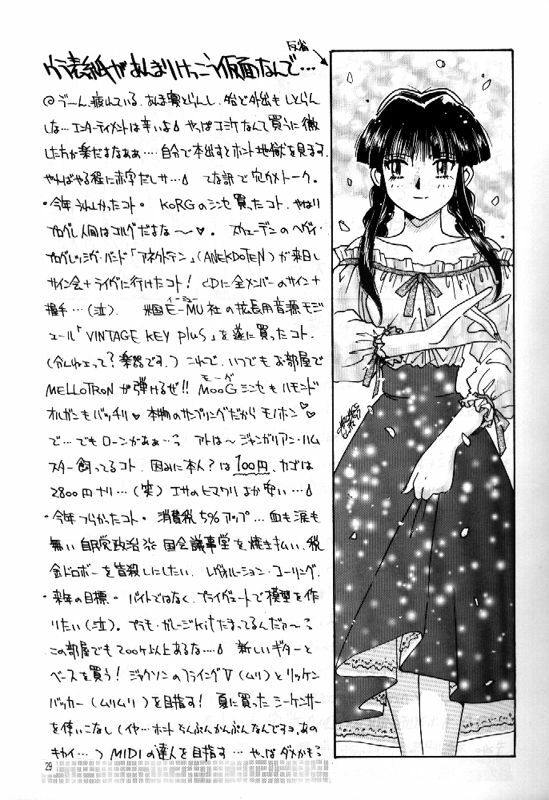 反省
ウラ表紙があんまりけっこう仮面なんで…
◎う〜ん、疲れている。あま寝とらんし、殆ど外出もしとらん
しな…エンターテイメントは辛いよ♪ やっぱコミケなんて買うに徹
した方が楽だよなぁぁ…自分で本出すとホント地獄を見ます。
やればやる程に赤字だしサ…♪ てな訳で穴カメトーク。
・今年うれしかったコト。 KORGのシンセ買ったコト、やはり
プログレ人間はコルグだよな〜♡。 スウェーデンのヘヴィ・
プログレッシヴ・バンド「アネクドテン」(ANEKDOTEN)が来日し
サイン会+ライヴに行けたコト! CDに全メンバーのサイン+
握手…(泣) 米国E-MU社の拡張用音源モジ
イーミュー
ュール「VINTAGE KEY plus」を遂に買ったコト。
(分んねぇって?楽器です。) これで、いつでもお部屋で
MELLOTRONが弾けるぜ!! MooGシンセもハモンド
モーグ
オルガンもバッチリ♡ 本物のサンプリングだからモノホン♡
で…でもローンがぁぁ…? アトは〜ジャンガリアン・ハム
スター飼ってるコト、因みに本人?は100円、カゴは
2800円ナリ…(笑) エサのヒマワリよか安い…♪
・今年つらかったコト。 消費税5%アップ…血も涙も
無い自民党政治 国会議事堂を焼き払い、税
金ドロボーを皆殺しにしたい。レヴォルーション・コーリング。
・来年の目標。 バイトではなく、プライヴェートで模型を作
りたい(泣)。プラモ・ガレージKitたまってるんだァ〜?
この部屋でも200ヶ以上あるな…♪ 新しいギターと
ベースを買う! ジャクソンのフライングV(ムリ)とリッケン
バッカー(ムリムリ)を目指す! 夏に買ったシーケンサー
を使いこなし(イヤ…ホントちんぷんかんぷんなんですヨ、あの
キカイ…) MIDIの達人を目指す…やっぱダメかもう
29